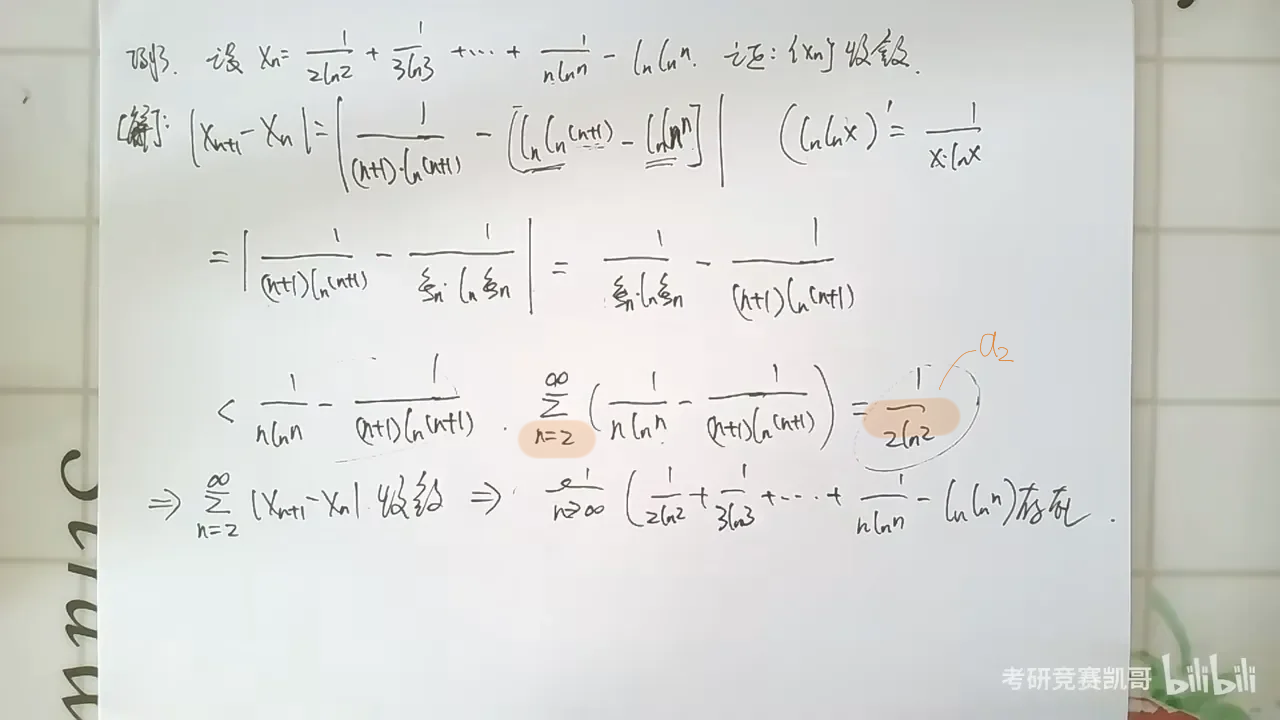 例3. 设 Xn = 1/(2ln2) + 1/(3ln3) + ⋯ + 1/(nlnn) - lnlnn. 证: {Xn} 收敛.
[解]: |Xn+1 - Xn| = |1/((n+1)·ln(n+1)) - [lnln(n+1) - lnlnn]| (lnlnx)' = 1/(x·lnx)
= |1/((n+1)ln(n+1)) - 1/(ξn·lnξn)| = 1/(ξn·lnξn) - 1/((n+1)ln(n+1))
a2
< 1/(nlnn) - 1/((n+1)ln(n+1)) . ∑_{n=2}^{∞} (1/(nlnn) - 1/((n+1)ln(n+1))) = 1/(2ln2)
⇒ ∑_{n=2}^{∞} |Xn+1 - Xn| 收敛 ⇒ lim_{n→∞} (1/(2ln2) + 1/(3ln3) + ⋯ + 1/(nlnn) - lnlnn) 存在.
考研竞赛凯哥 bilibili